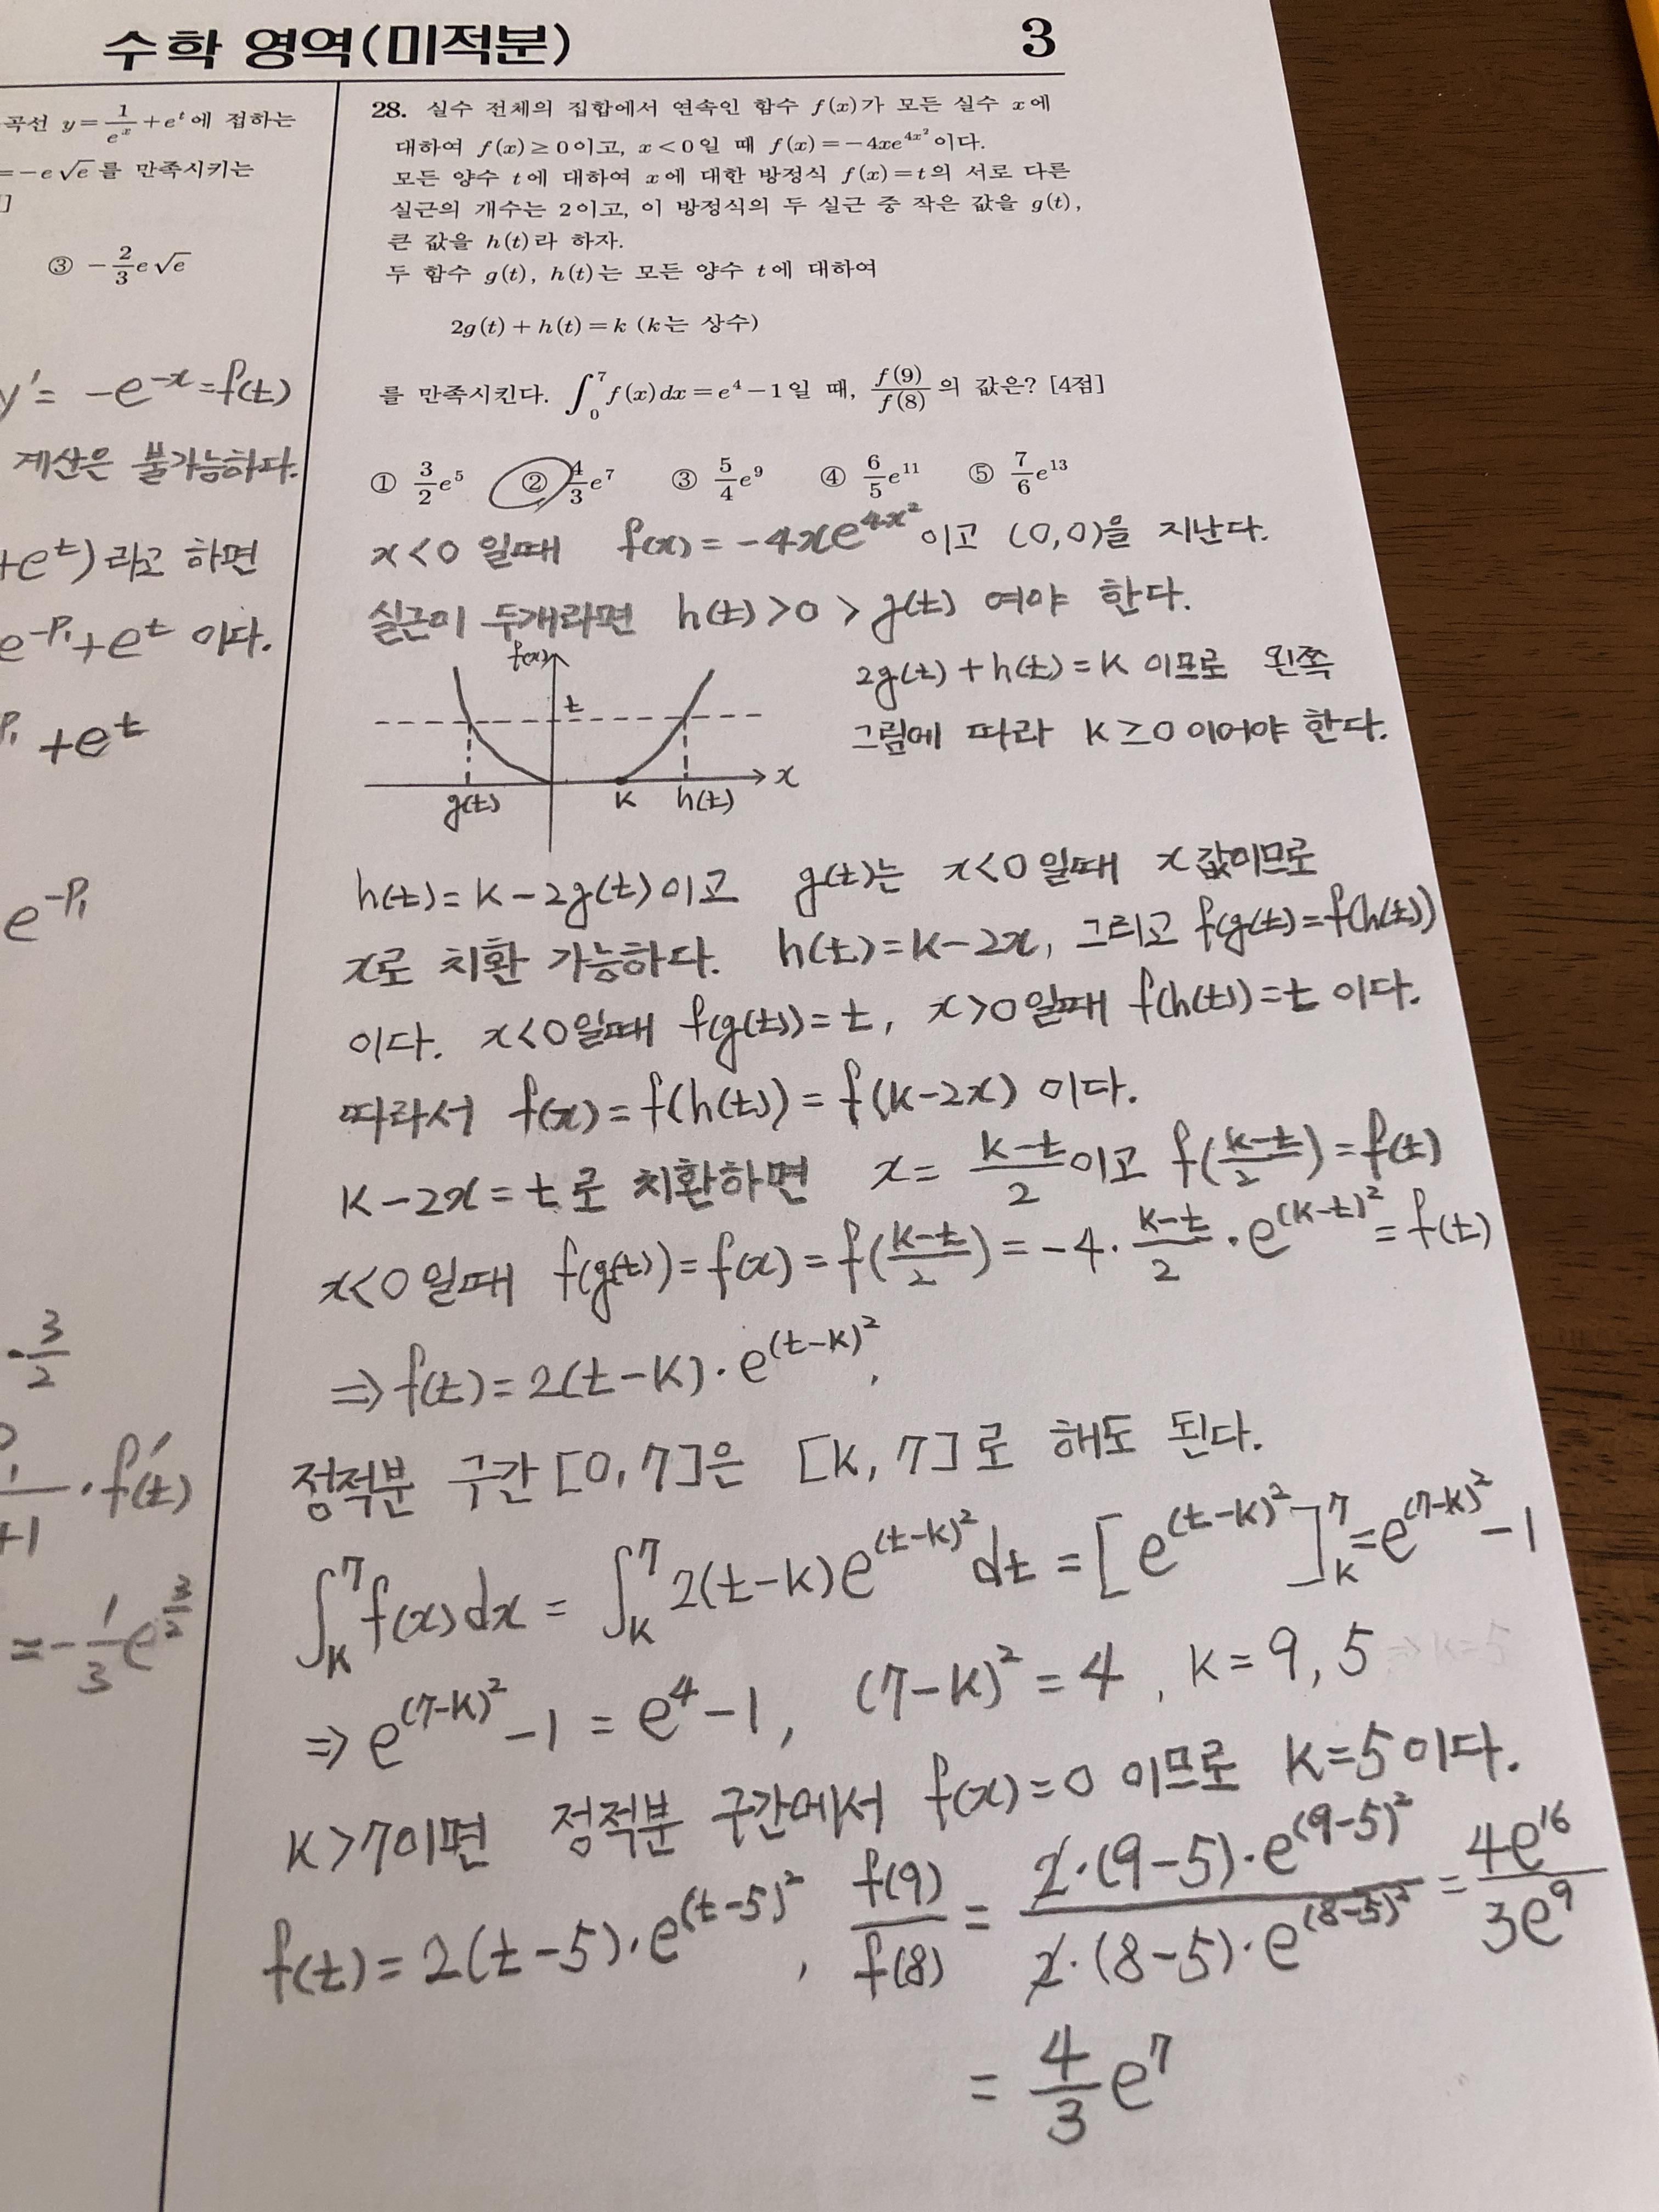 수학 영역(미적분)
3
곡선 y=\frac{1}{e^x}+e^t에 접하는
=-e\sqrt{e}를 만족시키는
]
③ -\frac{2}{3}e\sqrt{e}
y'= -e^{-x}=f(t)
계산은 불가능하다.
+e^t)라고 하면
e^{-P_1}+e^t 이다.
P_1 +e^t
e^{-P_1}
\cdot\frac{3}{2}
+1 \cdot f'(t)
=-\frac{1}{3}e^{\frac{3}{2}}
28. 실수 전체의 집합에서 연속인 함수 f(x)가 모든 실수 x에
대하여 f(x)≥0이고, x<0일 때 f(x)=-4xe^{4x^2}이다.
모든 양수 t에 대하여 x에 대한 방정식 f(x)=t의 서로 다른
실근의 개수는 2이고, 이 방정식의 두 실근 중 작은 값을 g(t),
큰 값을 h(t)라 하자.
두 함수 g(t), h(t)는 모든 양수 t에 대하여
2g(t)+h(t)=k (k는 상수)
를 만족시킨다. \int_0^7 f(x)dx=e^4-1일 때, \frac{f(9)}{f(8)}의 값은? [4점]
① \frac{3}{2}e^5 ② \frac{4}{3}e^7 ③ \frac{5}{4}e^9 ④ \frac{6}{5}e^{11} ⑤ \frac{7}{6}e^{13}
x<0 일때 f(x)=-4xe^{4x^2}이고 (0,0)을 지난다.
실근이 두개라면 h(t)>0>g(t) 여야 한다.
f(x)
t
x
g(t) k h(t)
2g(t)+h(t)=k 이므로 왼쪽
그림에 따라 k≥0이어야 한다.
h(t)=k-2g(t)이고 g(t)는 x<0일때 x값이므로
x로 치환 가능하다. h(t)=k-2x, 그리고 f(g(t))=f(h(t))
이다. x<0일때 f(g(t))=t, x>0일때 f(h(t))=t 이다.
따라서 f(x)=f(h(t))=f(k-2x) 이다.
k-2x=t로 치환하면 x=\frac{k-t}{2}이고 f(\frac{k-t}{2})=f(t)
x<0일때 f(g(t))=f(x)=f(\frac{k-t}{2})=-4\cdot\frac{k-t}{2}\cdot e^{(k-t)^2}=f(t)
⇒f(t)=2(t-k)\cdot e^{(t-k)^2},
정적분 구간[0,7]은 [k,7]로 해도 된다.
\int_k^7 f(x)dx=\int_k^7 2(t-k)e^{(t-k)^2}dt=[e^{(t-k)^2}]_k^7=e^{(7-k)^2}-1
⇒e^{(7-k)^2}-1=e^4-1, (7-k)^2=4, k=9,5
k>7이면 정적분 구간에서 f(x)=0 이므로 k=5이다.
f(t)=2(t-5)\cdot e^{(t-5)^2}, \frac{f(9)}{f(8)}=\frac{2\cdot(9-5)\cdot e^{(9-5)^2}}{2\cdot(8-5)\cdot e^{(8-5)^2}}=\frac{4e^{16}}{3e^9}
=\frac{4}{3}e^7